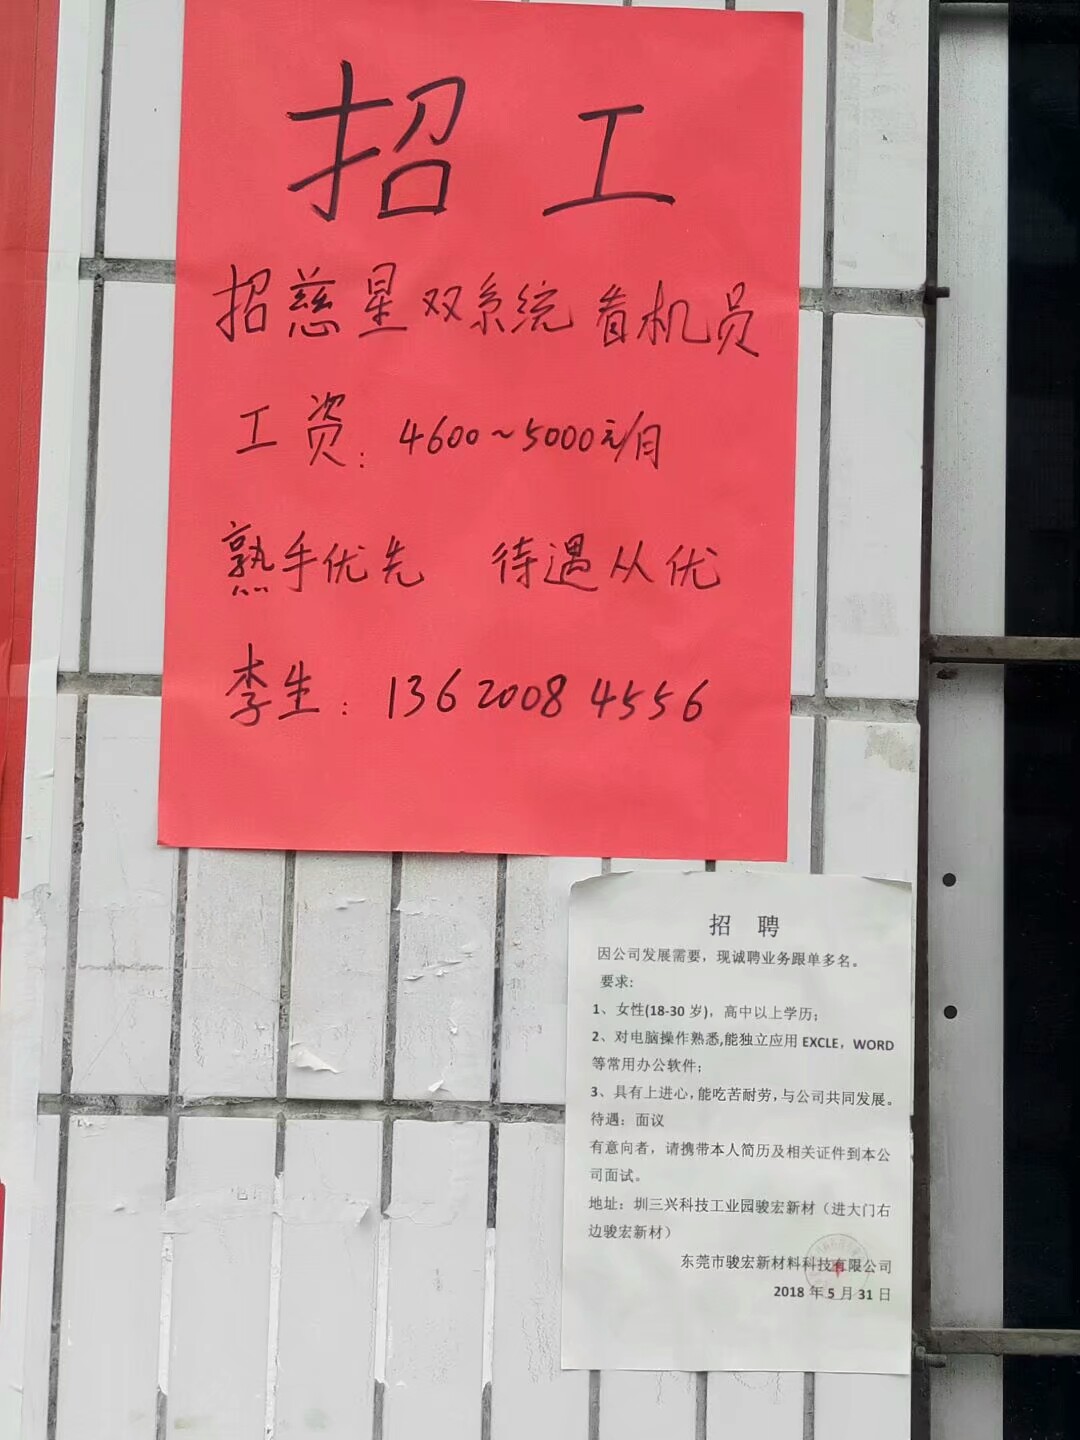 招 工
招慈星双系统看机员
工资：4600~5000元/月
熟手优先 待遇从优
李生：13620084556
招 聘
因公司发展需要，现诚聘业务跟单多名。
要求:
1、女性(18-30 岁)，高中以上学历；
2、对电脑操作熟悉,能独立应用 EXCLE，WORD
等常用办公软件；
3、具有上进心，能吃苦耐劳，与公司共同发展。
待遇：面议
有意向者，请携带本人简历及相关证件到本公
司面试。
地址：圳三兴科技工业园骏宏新材（进大门右
边骏宏新材）
东莞市骏宏新材料科技有限公司
2018 年 5 月 31 日